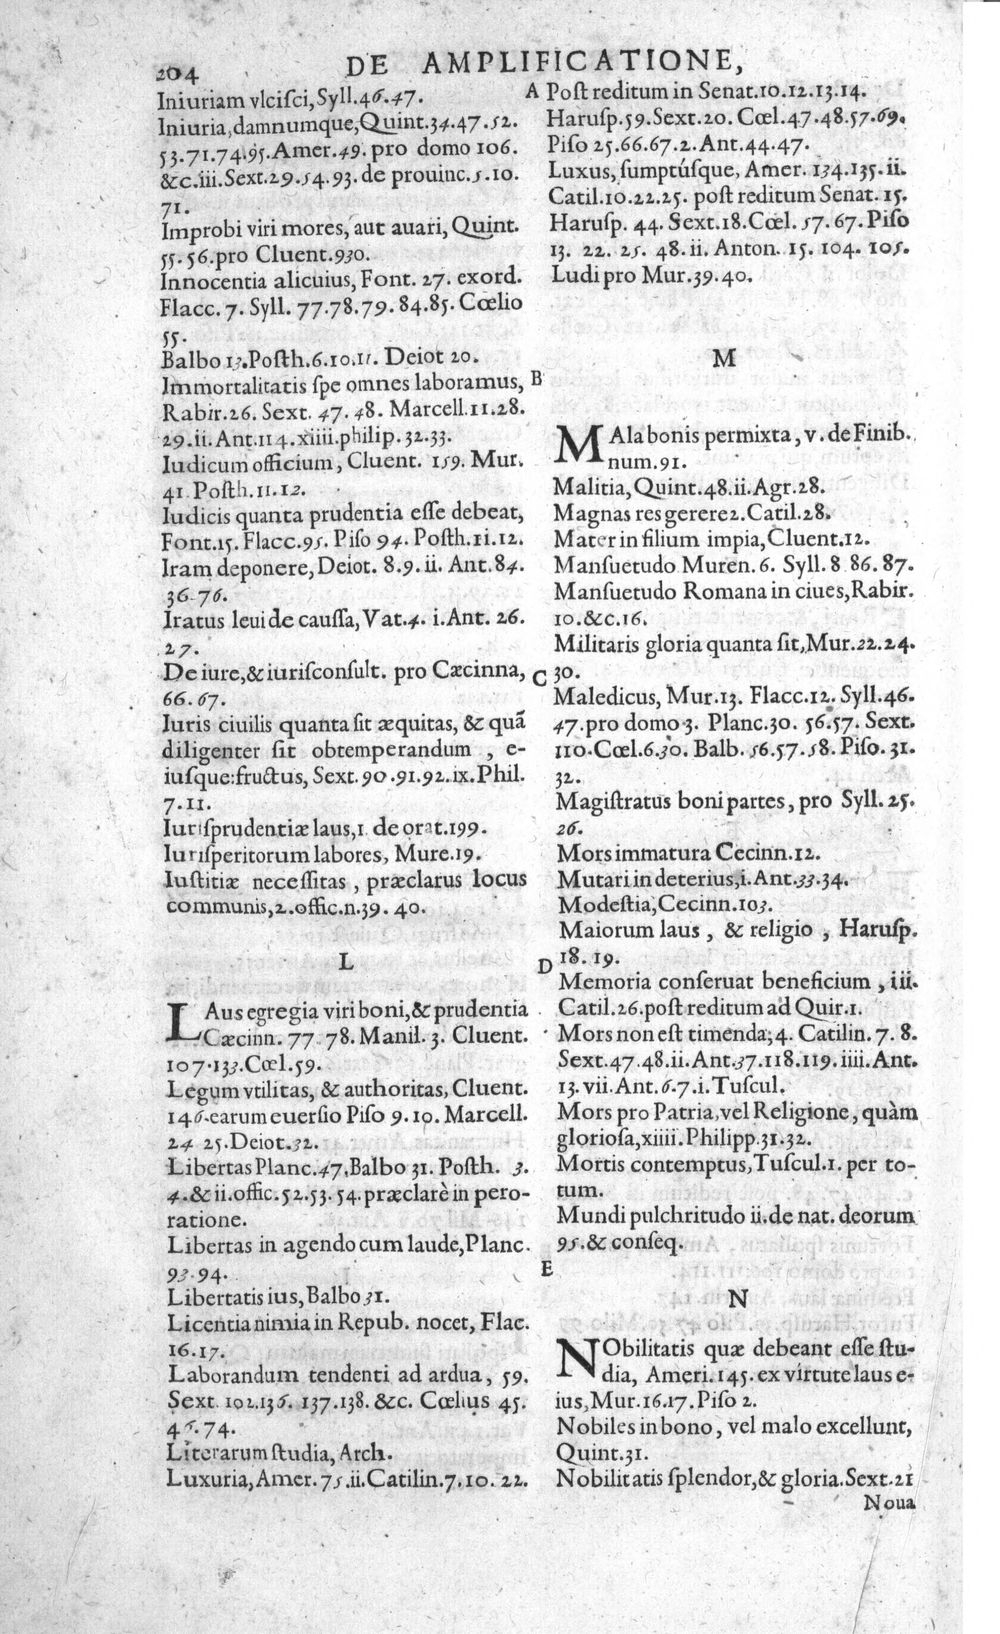 204 DE AMPLIFICATIONE,
Iniuriam vlcisci, Syll.46.47.
Iniuria, damnumque, Quint.34.47.52.
53.71.74.95. Amer.49. pro domo 106.
&c.iii.Sext.29.54.93. de prouinc.5.10.
71.
Improbi viri mores, aut auari, Quint.
55.56.pro Cluent.930.
Innocentia alicuius, Font. 27. exord.
Flacc. 7. Syll. 77.78.79. 84.85. Cœlio
55.
Balbo 13.Posth.6.10.11. Deiot 20.
Immortalitatis spe omnes laboramus,
Rabir.26. Sext. 47. 48. Marcell.11.28.
29.ii. Ant.114.xiiii.philip.32.33.
Iudicum officium, Cluent. 159. Mur.
41 Posth.11.12.
Iudicis quanta prudentia esse debeat,
Font.15. Flacc.95. Piso 94. Posth.11.12.
Iram deponere, Deiot. 8.9. ii. Ant.84.
36.76.
Iratus leui de caussa, Vat.4. i.Ant. 26.
27.
De iure,& iurisconsult. pro Cæcinna,
66.67.
Iuris ciuilis quanta sit æquitas, & quã
diligenter sit obtemperandum , e-
iusque:fructus, Sext.90.91.92.ix.Phil.
7.11.
Iurisprudentiæ laus,1. de orat.199.
Iurisperitorum labores, Mure.19.
Iustitiæ necessitas , præclarus locus
communis,2.offic.n.39. 40.
L
LAus egregia viri boni,& prudentia
Cæcinn. 77 78. Manil. 3. Cluent.
107.133.Cœl.59.
Legum vtilitas, & authoritas, Cluent.
146.earum euersio Piso 9.10. Marcell.
24 25.Deiot.32.
Libertas Planc.47, Balbo 31. Posth. 3.
4.& ii.offic.52.53.54.præclarè in pero-
ratione.
Libertas in agendo cum laude, Planc.
93.94.
Libertatis ius, Balbo 31.
Licentia nimia in Repub. nocet, Flac.
16.17.
Laborandum tendenti ad ardua, 59.
Sext. 102.136. 137.138. &c. Cœlius 45.
46.74.
Literarum studia, Arch.
Luxuria, Amer.75.ii.Catilin.7.10. 22.
A Post reditum in Senat.10.12.13.14.
Harusp.59.Sext.20. Cœl.47.48.57.69.
Piso 25.66.67.2.Ant.44.47.
Luxus, sumptúsque, Amer. 134.135.ii.
Catil.10.22.25. post reditum Senat. 15.
Harusp. 44. Sext.18.Cœl. 57. 67. Piso
13. 22. 25. 48.ii. Anton. 15. 104. 105.
Ludi pro Mur.39.40.
M
B
MAla bonis permixta, v. de Finib.
num.91.
Malitia, Quint.48.ii.Agr.28.
Magnas res gerere2.Catil.28.
Mater in filium impia, Cluent.12.
Mansuetudo Muren.6. Syll. 8 86.87.
Mansuetudo Romana in ciues, Rabir.
10.&c.16.
Militaris gloria quanta sit, Mur.22.24.
C 30.
Maledicus, Mur.13. Flacc.12. Syll.46.
47.pro domo 3. Planc.30. 56.57. Sext.
110.Cœl.6.30. Balb. 56.57.58. Piso. 31.
32.
Magistratus boni partes, pro Syll. 25.
26.
Mors immatura Cecinn.12.
Mutari in deterius,i.Ant.33.34.
Modestia, Cecinn.103.
Maiorum laus , & religio , Harusp.
D 18.19.
Memoria conseruat beneficium , iii.
Catil.26.post reditum ad Quir.1.
Mors non est timenda, 4. Catilin. 7. 8.
Sext.47.48.ii.Ant.37.118.119.iiii.Ant.
13.vii.Ant.6.7.i.Tuscul.
Mors pro Patria, vel Religione, quàm
gloriosa, xiiii.Philipp.31.32.
Mortis contemptus, Tuscul.1. per to-
tum.
Mundi pulchritudo ii.de nat. deorum
95.& conseq.
E
N
NObilitatis quæ debeant esse stu-
dia, Ameri. 145. ex virtute laus e-
ius, Mur.16.17. Piso 2.
Nobiles in bono, vel malo excellunt,
Quint.31.
Nobilitatis splendor,& gloria.Sext.21
Noua